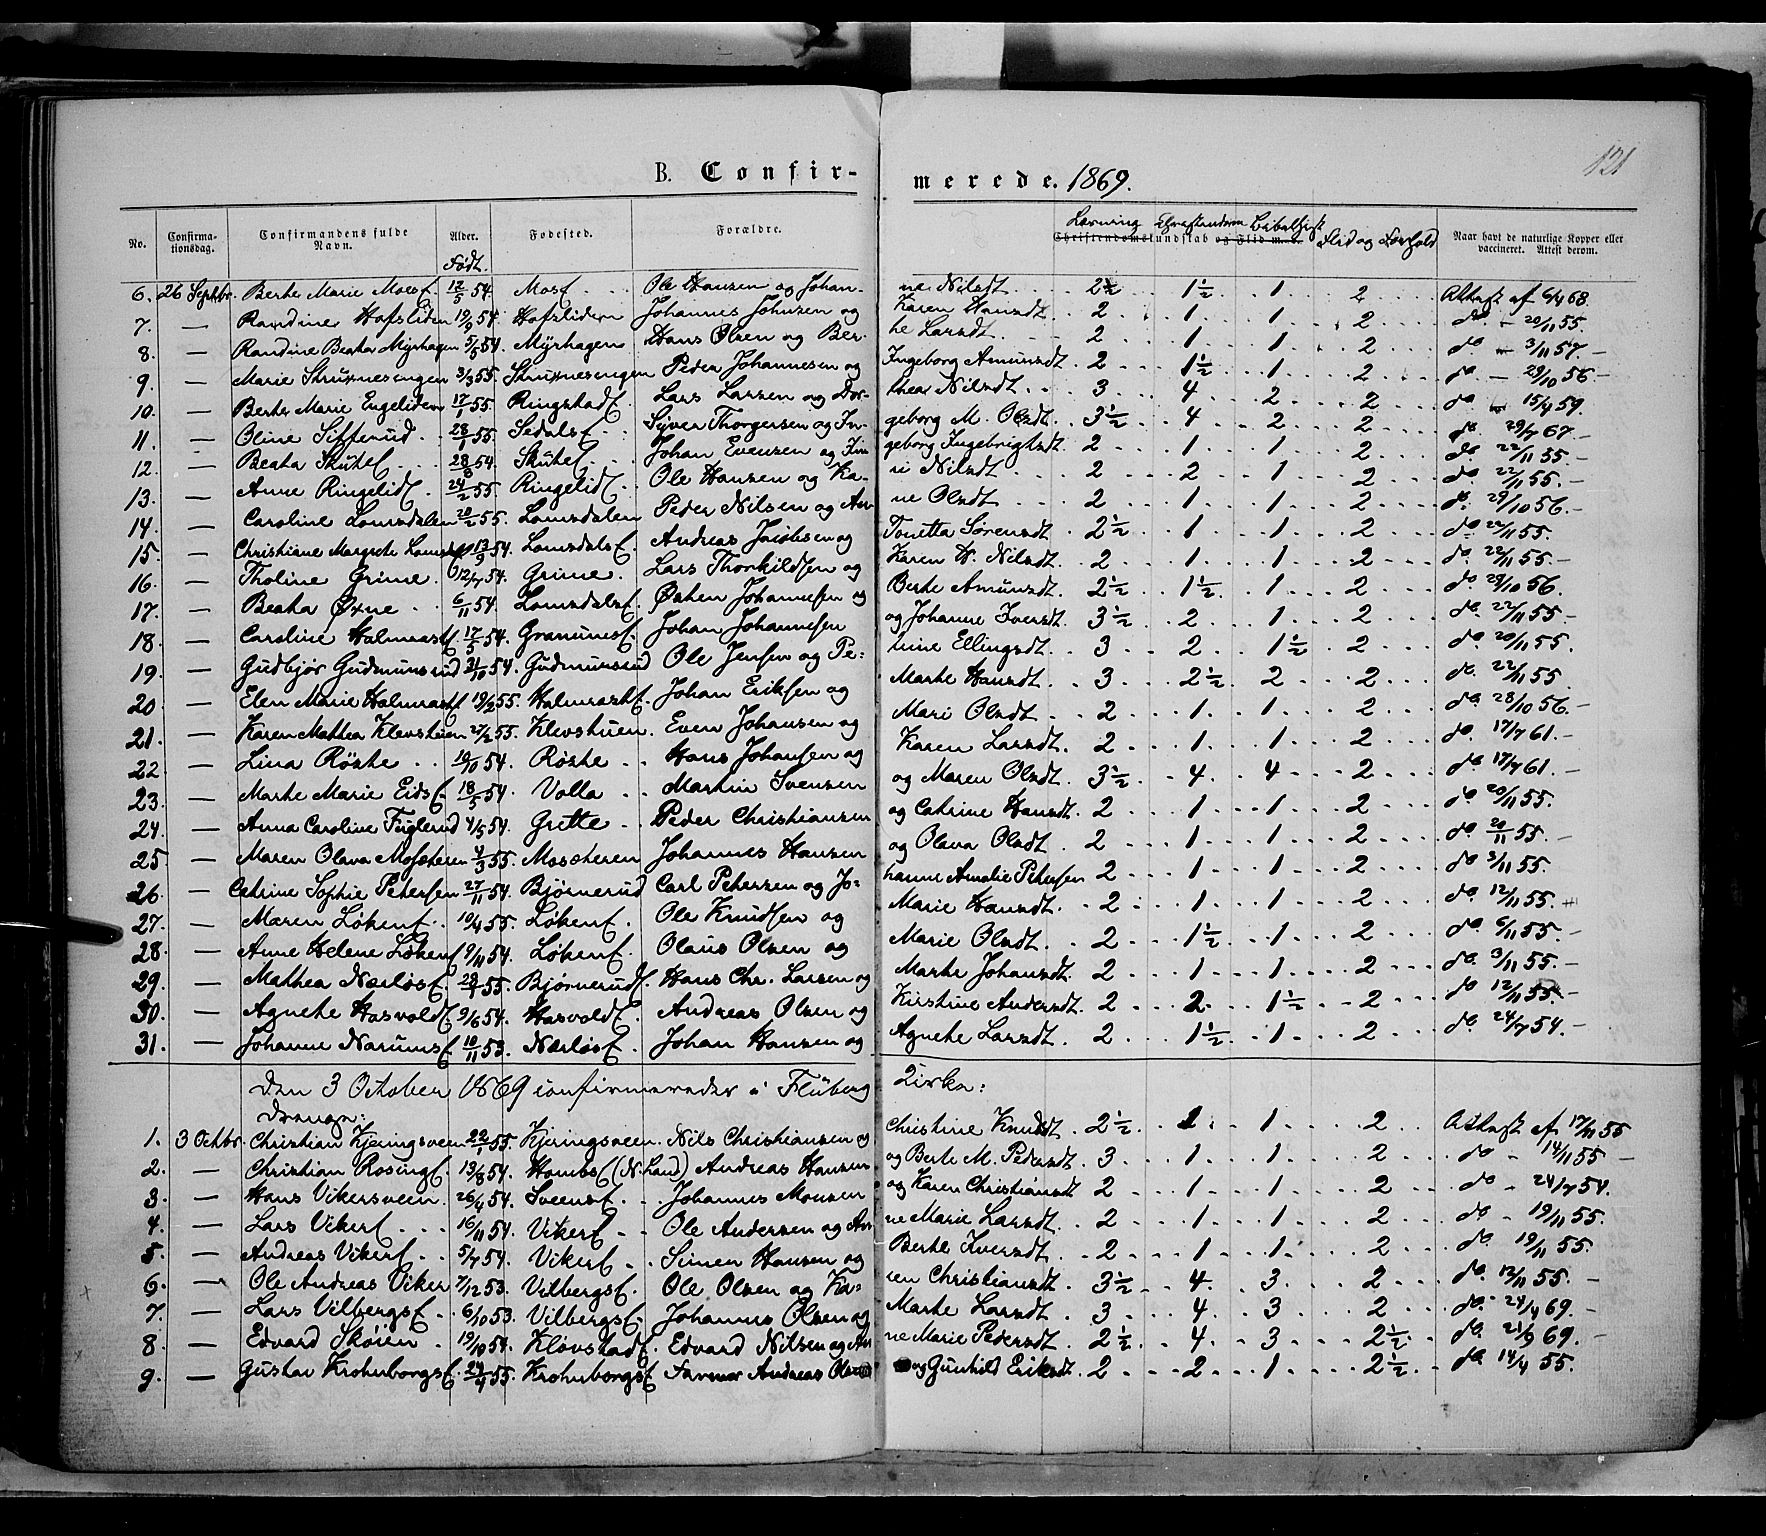 121
B. Confir-merede. 1869.
No. Confirmationsdag. Confirmandens fulde Navn. Alder. Født. Fødested. Forældre. Christendomskundskab og Flid m. v. Læsning Bibelhist Flid og Forhold Naar havt de naturlige Kopper eller vaccineret. Attest derom.
6. 26 Septbr. Berthe Marie Moesf. 12/5 54. Mosf. Ole Hansen og Johanne Nilsdt. 2½ 1½ 1 2 Attest af 6/4 68.
7. — Randine Hofsliden 19/9 54. Hofslidern Johannes Johnsen og Karen Hansdt 2 1 1 2 do - 20/11 55.
8. — Randine Beathe Myrhagen 5/5 54. Myrhagen Hans Olsen og Berthe Larsdt 2 1 1 2 do 3/11 57.
9. — Marie Struxnesengen 3/3 55. Struxnesengen Peder Johannesen og Ingeborg Amundsdt 2 1½ 1 2 do - 29/10 56
10. — Berthe Marie Engeliden 17/1 55. Ringstadf. Lars Larsen og Dorthea Nilsdt 3 4 2 2 do 15/4 59.
11. — Oline Sifferud 28/1 55. Sedalsf. Syver Thorgersen og Ingeborg M. Olsdt. 3½ 4 2 2 do 29/7 67.
12. — Beatha Skutef. 28/8 54. Skutef. Johan Evensen og Ingeborg Ingebrigtsdt 2 1 1 2 do 22/11 55.
13. — Anne Ringelidf. 24/2 55. Ringelidf. Ole Hansen og Kari Nilsdt 2 2 1 2 do 22/11 55.
14. — Caroline Lomsdalen 20/2 55. Lomsdalen Peder Nilsen og Anne Olsdt 2 1 1 2 do 29/10 56.
15. — Christiane Margrete Lomsdf 13/9 54. Lomsdalsf. Andreas Jacobsen og Tonetta Sørensdt 2½ 1 1 2 do 22/11 55.
16. — Tholine Grime. 12/7 54. Grime. Lars Thorkildsen og Karen H. Nilsdt 2 1 1 2 do 22/11 55.
17. — Beatha Øxne 6/11 54. Lomsdalsf. Østen Johannesen og Berthe Amundsdt 2½ 1½ 1 2 do 29/10 56.
18. — Caroline Halmrastf. 17/5 54. Granumsf. Johan Johannesen og Johanne Iversdt 3½ 2 1 2 do. 22/11 55.
19. — Gudbjør Gudmunsrud 31/10 54. Gudmunsrud Ole Jensen og Pernine Ellingsdt. 3 2 1½ 2 do. 20/11 55.
20. — Elen Marie Halmrastf 19/2 55. Halmrastf. Johan Eriksen og Marthe Hansdt. 3 2½ 2 2 do. 22/11 55.
21. — Karen Mathea Klevstuen 27/2 55. Klevstuen. Even Johansen og Mari Olsdt 2 1 1 2 do. 28/10 56.
22. — Lina Røste 10/10 54. Røste Hans Johansen og Karen Larsdt. 2 1 1 2 do. 17/7 61.
23. — Marthe Marie Eidsf. 18/5 54. Volla Martin Svensen og Maren Olsdt. 3½ 4 4 2 do. 17/7 61.
24. — Anna Caroline Fuglerud 4/5 54. Grette Peder Christiansen og Catrine Hansdt 2 1 1 2 do 20/11 55.
25 — Maren Olava Moseteren 4/3 55. Moseteren Johannes Hansen og Olava Olsdt 2 1 1 2 do 20/11 55.
26. — Catrine Sophie Petersen 27/11 54. Bjørnerud Carl Petersen og Johanne Amalie Petersen 2 1 1 2 do 3/11 55.
27. — Maren Løkenf. 10/4 55. Løkenf. Ole Knudsen og Marie Hansdt. 2 1 1 2 do. 12/11 55.
28. — Anne Helene Løkenf 9/11 54. Løkenf. Olaus Olsen og Marie Olsdt. 2 1½ 1 2 do. 6/11 55.
29. — Mathea Nærløsf. 28/1 55. Bjørnerudf. Hans Chr. Larsen og Marthe Johansdt. 2 1 1 2 do. 3/11 55.
30. — Agnethe Hasvoldf. 9/6 54. Hasvoldf. Andreas Olsen og Kirstine Andersdt 2 2 1½ 2 do 12/11 55.
31. — Johanne Narumsf 10/11 53. Nærløsf. Johan Hansen og Agnethe Larsdt 2 1½ 1 2 do. 24/7 54.
Den 3 October 1869 confirmerede i Fluberg Kirke:
Drenge:
1. 3 Octbr. Christian Kjeringsveen 22/1 55. Kjeringsveen. Nils Christiansen og Christine Knudsdt 2½ 1 1 2 Attest af 17/11 55
2. — Christian Rosingf. 13/8 54. Hombsf (N. Land) Andreas Hansen og Berte M. Pedersdt. 3 1 1 2 do - 14/11 55
3. — Hans Vikersveen. 26/4 54. Sveensf. Johannes Monsen og Karen Christiansdt 2 1 1 2 do - 24/7 54.
4. — Lars Vikerf. 16/11 54. Vikerf. Ole Andersen og Anne Marie Larsdt 2 1 1 2 do - 19/11 55.
5. — Andreas Vikerf. 5/7 54. Vikerf. Simen Hansen og Berthe Iversdt 2 1 1 2 do. 19/11 55.
6. — Ole Andreas Viker 7/12 53. Vilbergsf. Ole Olsen og Karen Christiansdt 3½ 4. 3 2 do. 12/11 55.
7. — Lars Vilbergsf. 6/10 53. Vilbergsf. Johannes Olsen og Marthe Larsdt 3 4. 3 2 do. 24/4 69.
8 — Edvard Skøien 19/10 54. Kløvstadf. Edvard Nilsen og Anne Marie Pedersdt. 2½ 4 3 2½ do. 21/9 69.
9. — Gustav Krohnborgsf. 24/4 55. Krohnborgsf. Farver Andreas Olsen og Gunhild Eriksdt 2 2 1 2½ do. 14/4 55.